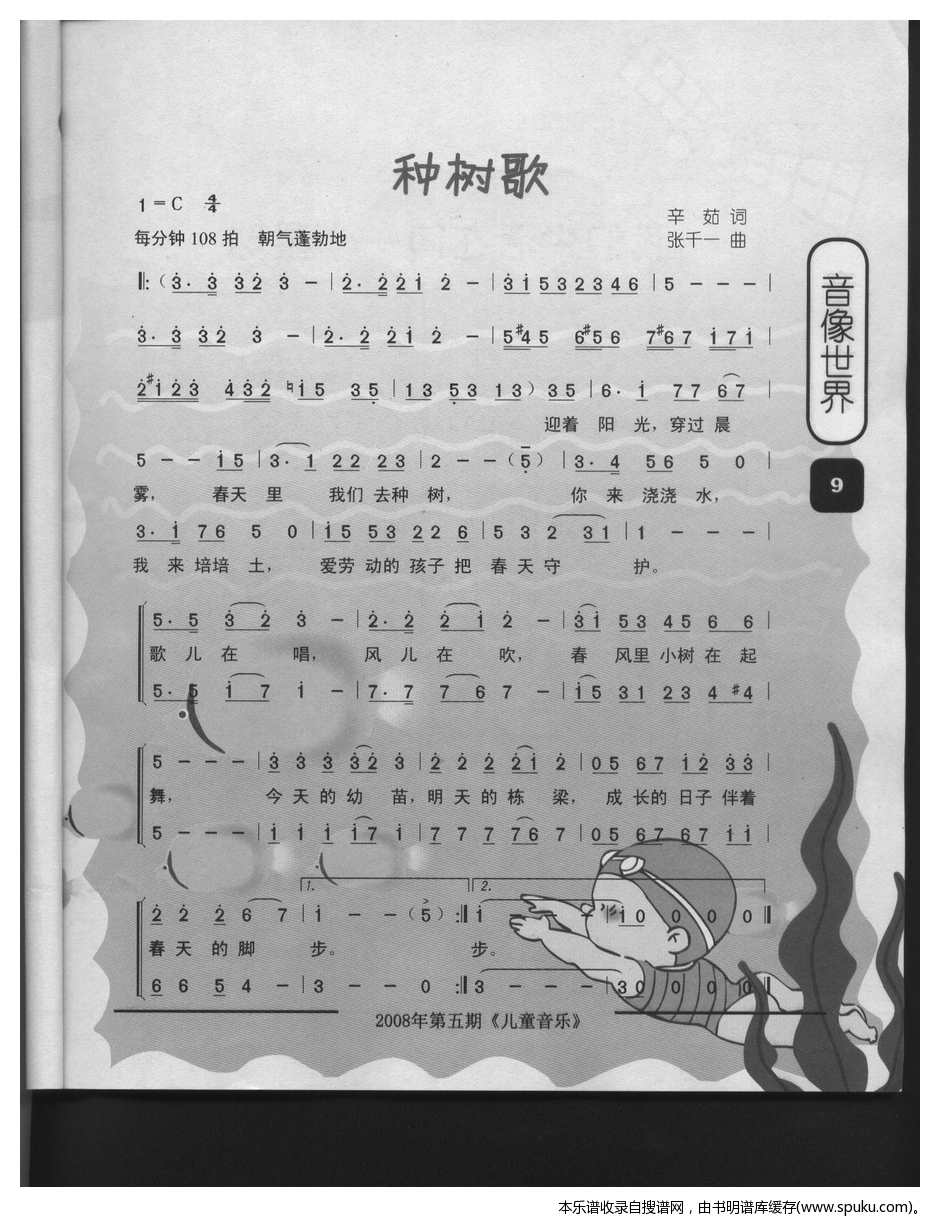 种树歌
1=C 4/4
辛 茹 词
每分钟 108 拍 朝气蓬勃地
张千一 曲
音像世界
9
‖:（3. 3 32 3 － | 2. 221 2 － | 31532346 | 5 － － － |
3. 3 32 3 － | 2. 2 21 2 － | 5#45 6#56 7#67 171 |
2#123 432 ♮15 35 | 13 53 13）35 | 6. 1 77 67 |
迎着 阳 光，穿过 晨
5 － － 15 | 3. 1 22 23 | 2 － －（5）| 3. 4 56 5 0 |
雾， 春天 里 我们 去种 树， 你 来 浇浇 水，
3. 1 76 5 0 | 15 53 22 6 | 53 2 31 | 1 － － － |
我 来 培培 土， 爱劳 动的 孩子 把 春 天 守 护。
5. 5 3 2 3 － | 2. 2 2 1 2 － | 31 53 45 6 6 |
歌 儿 在 唱， 风 儿 在 吹， 春 风里 小树 在 起
5. 5 1 7 1 － | 7. 7 7 6 7 － | 15 31 23 4 #4 |
5 － － － | 3 3 3 32 3 | 2 2 2 21 2 | 05 67 12 33 |
舞， 今 天 的 幼 苗，明 天 的 栋 梁， 成 长的 日子 伴着
5 － － － | 1 1 1 17 1 | 7 7 7 76 7 | 05 67 67 11 |
1. 2.
2 2 2 6 7 | 1 － －（5）:‖ 1 － － － | 10 0 0 0 ‖
春 天 的 脚 步。 步。
6 6 5 4 － | 3 － － 0 :‖ 3 － － － | 30 0 0 0 ‖
2008年第五期《儿童音乐》
本乐谱收录自搜谱网，由书明谱库缓存(www.spuku.com)。